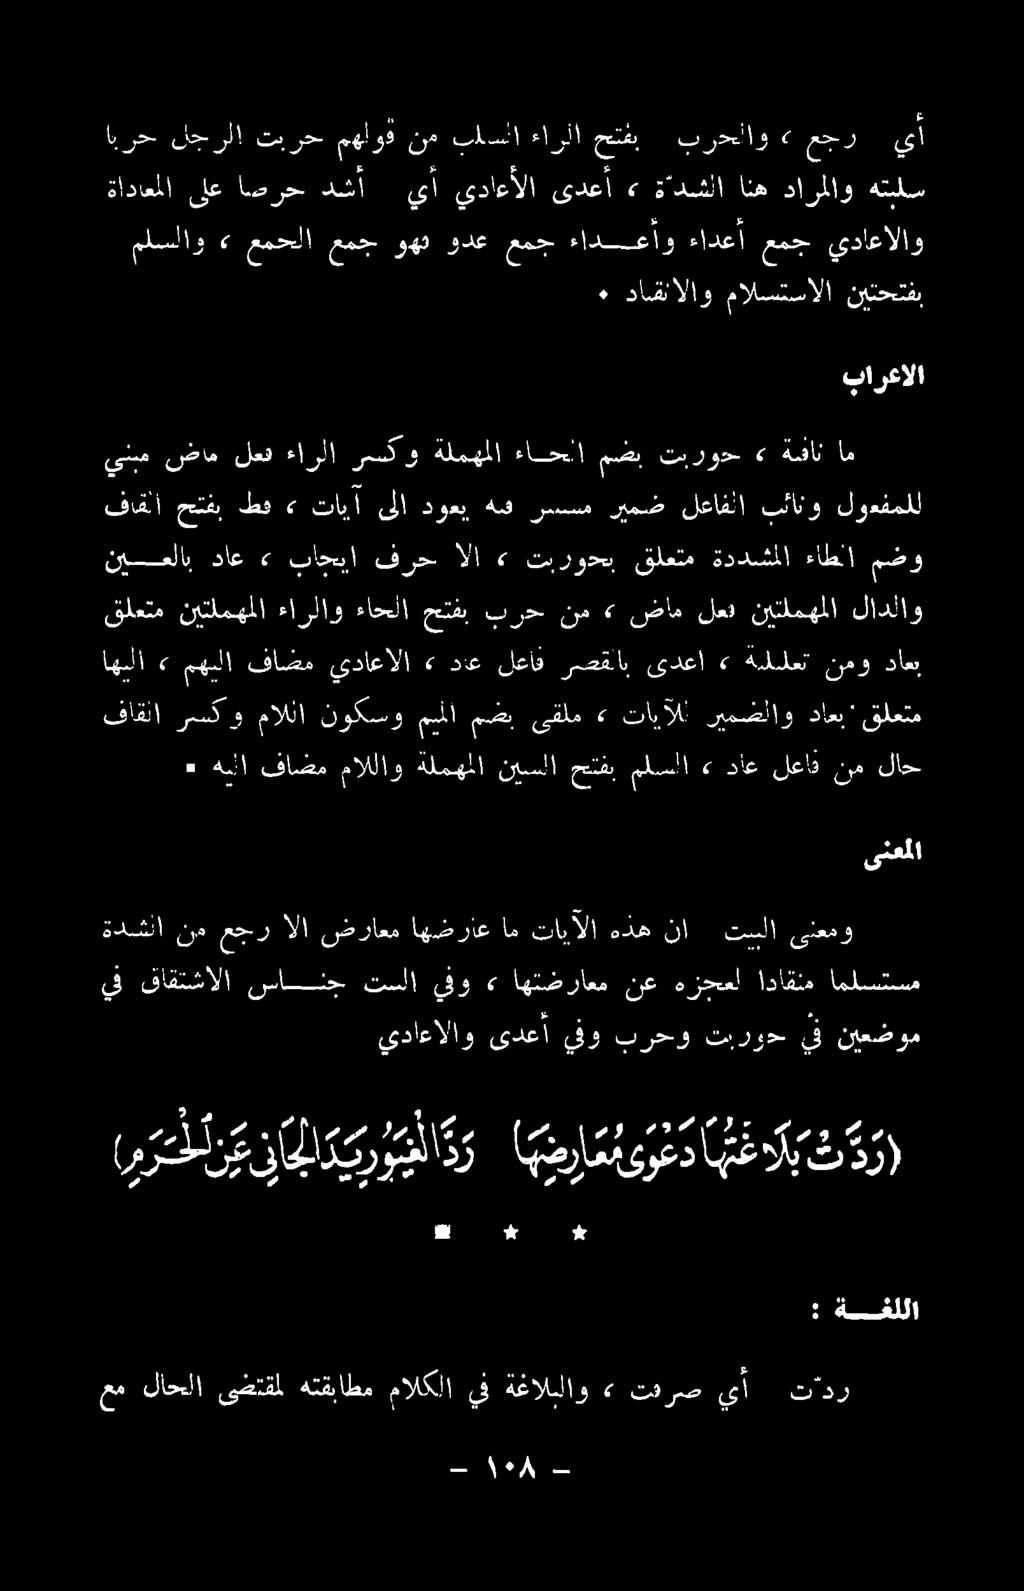 أي رجع ، والحرب بفتح الراء السلب من قولهم حربت الرجل حربا
سلبته والمراد هنا الشدّة ، أعدى الأعادي أي أشد حرصا على المعاداة
والاعادي جمع أعداء وأعـداء جمع عدو فهو جمع الجمع ، والسلم
بفتحتين الاستسلام والانقياد •
الاعراب
ما نافية ، حوربت بضم الحاء المهملة وكسر الراء فعل ماض مبني
للمفعول ونائب الفاعل ضمير مستتر فيه يعود الى آيات ، قط بفتح القاف
وضم الطاء المشددة متعلق بحوربت ، الا حرف ايجاب ، عاد بالعـين
والدال المهملتين فعل ماض ، من حرب بفتح الحاء والراء المهملتين متعلق
بعاد ومن تعليلية ، اعدى بالقصر فاعل عاد ، الاعادي مضاف اليهم ، اليها
متعلق بعاد والضمير للآيات ، ملقي بضم الميم وسكون اللام وكسر القاف
حال من فاعل عاد ، السلم بفتح السين المهملة واللام مضاف اليه •
المعنى
ومعنى البيت ان هذه الآيات ما عارضها معارض الا رجع من الشدة
مستسلما منقادا لعجزه عن معارضتها ، وفي البيت جنـاس الاشتقاق في
موضعين في حوربت وحرب وفي أعدى والاعادي
(رَدَّتْ بَلَاغَتُهَا دَعْوَى مُعَارِضِهَا رَدَّ الْغَيُورِ يَدَ الْجَانِي عَنِ الْحَرَمِ)
★ ★ ■
اللغـة :
ردّت أي صرفت ، والبلاغة في الكلام مطابقته لمقتضى الحال مع
– ١٠٨ –